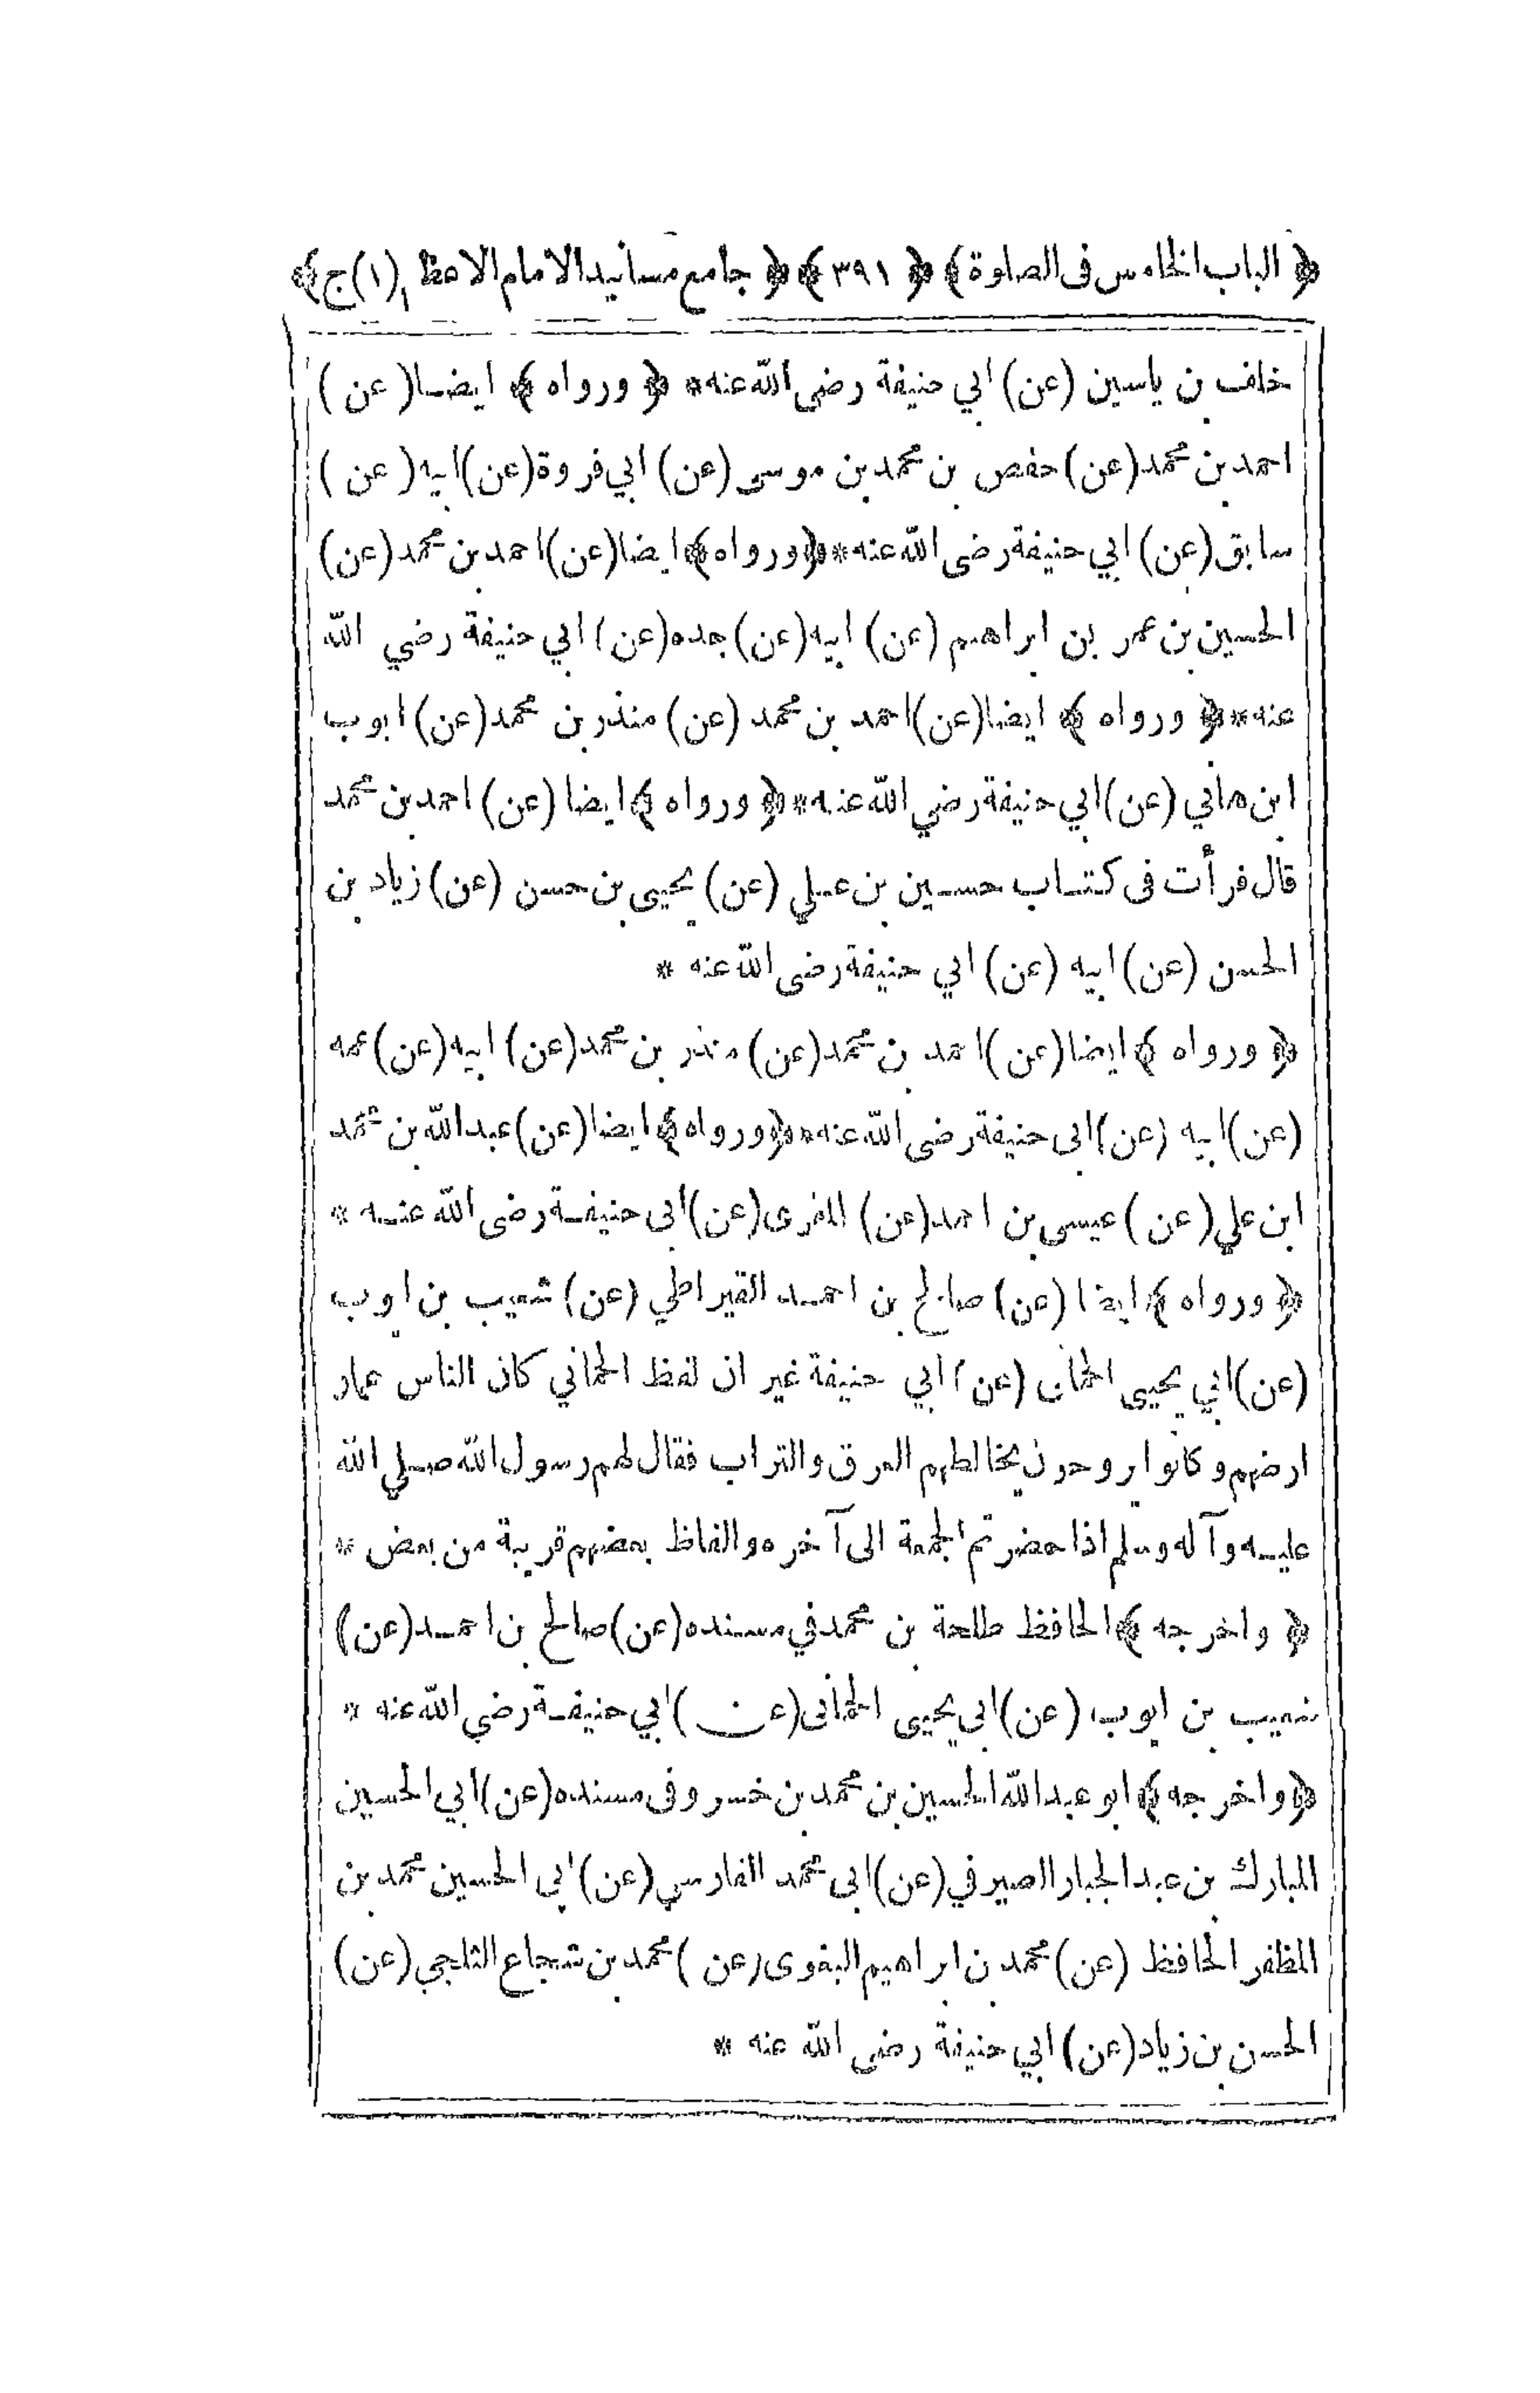 ﴿ الباب الخامس فى الصلوة ﴾ ﴿ ٣٩١ ﴾ ﴿ جامع مسانيد الامام الاعظم (١) ج ﴾
خلف بن ياسين (عن) ابي حنيفة رضى الله عنه* ﴿ ورواه ﴾ ايضا (عن)
احمد بن محمد (عن) حفص بن محمد بن موسى (عن) ابي فروة (عن) ابيه (عن)
سابق (عن) ابي حنيفة رضى الله عنه* ﴿ ورواه ﴾ ايضا (عن) احمد بن محمد (عن)
الحسين بن عمر بن ابراهيم (عن) ابيه (عن) جده (عن) ابي حنيفة رضي الله
عنه* ﴿ ورواه ﴾ ايضا (عن) احمد بن محمد (عن) منذر بن محمد (عن) ايوب
ابن هاني (عن) ابي حنيفة رضي الله عنه* ﴿ ورواه ﴾ ايضا (عن) احمد بن محمد
قال قرأت فى كتاب حسين بن على (عن) يحيى بن حسن (عن) زياد بن
الحسن (عن) ابيه (عن) ابي حنيفة رضى الله عنه *
﴿ ورواه ﴾ ايضا (عن) احمد بن محمد (عن) منذر بن محمد (عن) ابيه (عن) عمه
(عن) ابيه (عن) ابى حنيفة رضى الله عنه* ﴿ ورواه ﴾ ايضا (عن) عبد الله بن محمد
ابن علي (عن) عيسى بن احمد (عن) المقرى (عن) ابى حنيفة رضى الله عنه *
﴿ ورواه ﴾ ايضا (عن) صالح بن احمد القيراطي (عن) شعيب بن ايوب
(عن) ابي يحيى الحمانى (عن) ابي حنيفة غير ان لفظ الحماني كان الناس عمار
ارضهم وكانوا يروحون يخالطهم العرق والتراب فقال لهم رسول الله صلي الله
عليه وآله وسلم اذا حضرتم الجمعة الى آخره والفاظ بعضهم قريبة من بعض *
﴿ واخرجه ﴾ الحافظ طلحة بن محمد في مسنده (عن) صالح بن احمد (عن)
شعيب بن ايوب (عن) ابى يحيى الحمانى (عن) ابي حنيفة رضي الله عنه *
﴿ واخرجه ﴾ ابو عبد الله الحسين بن محمد بن خسرو فى مسنده (عن) ابي الحسين
المبارك بن عبد الجبار الصيرفي (عن) ابى محمد الفارسي (عن) ابى الحسين محمد بن
المظفر الحافظ (عن) محمد بن ابراهيم البغوى (عن) محمد بن شجاع الثلجي (عن)
الحسن بن زياد (عن) ابي حنيفة رضى الله عنه *